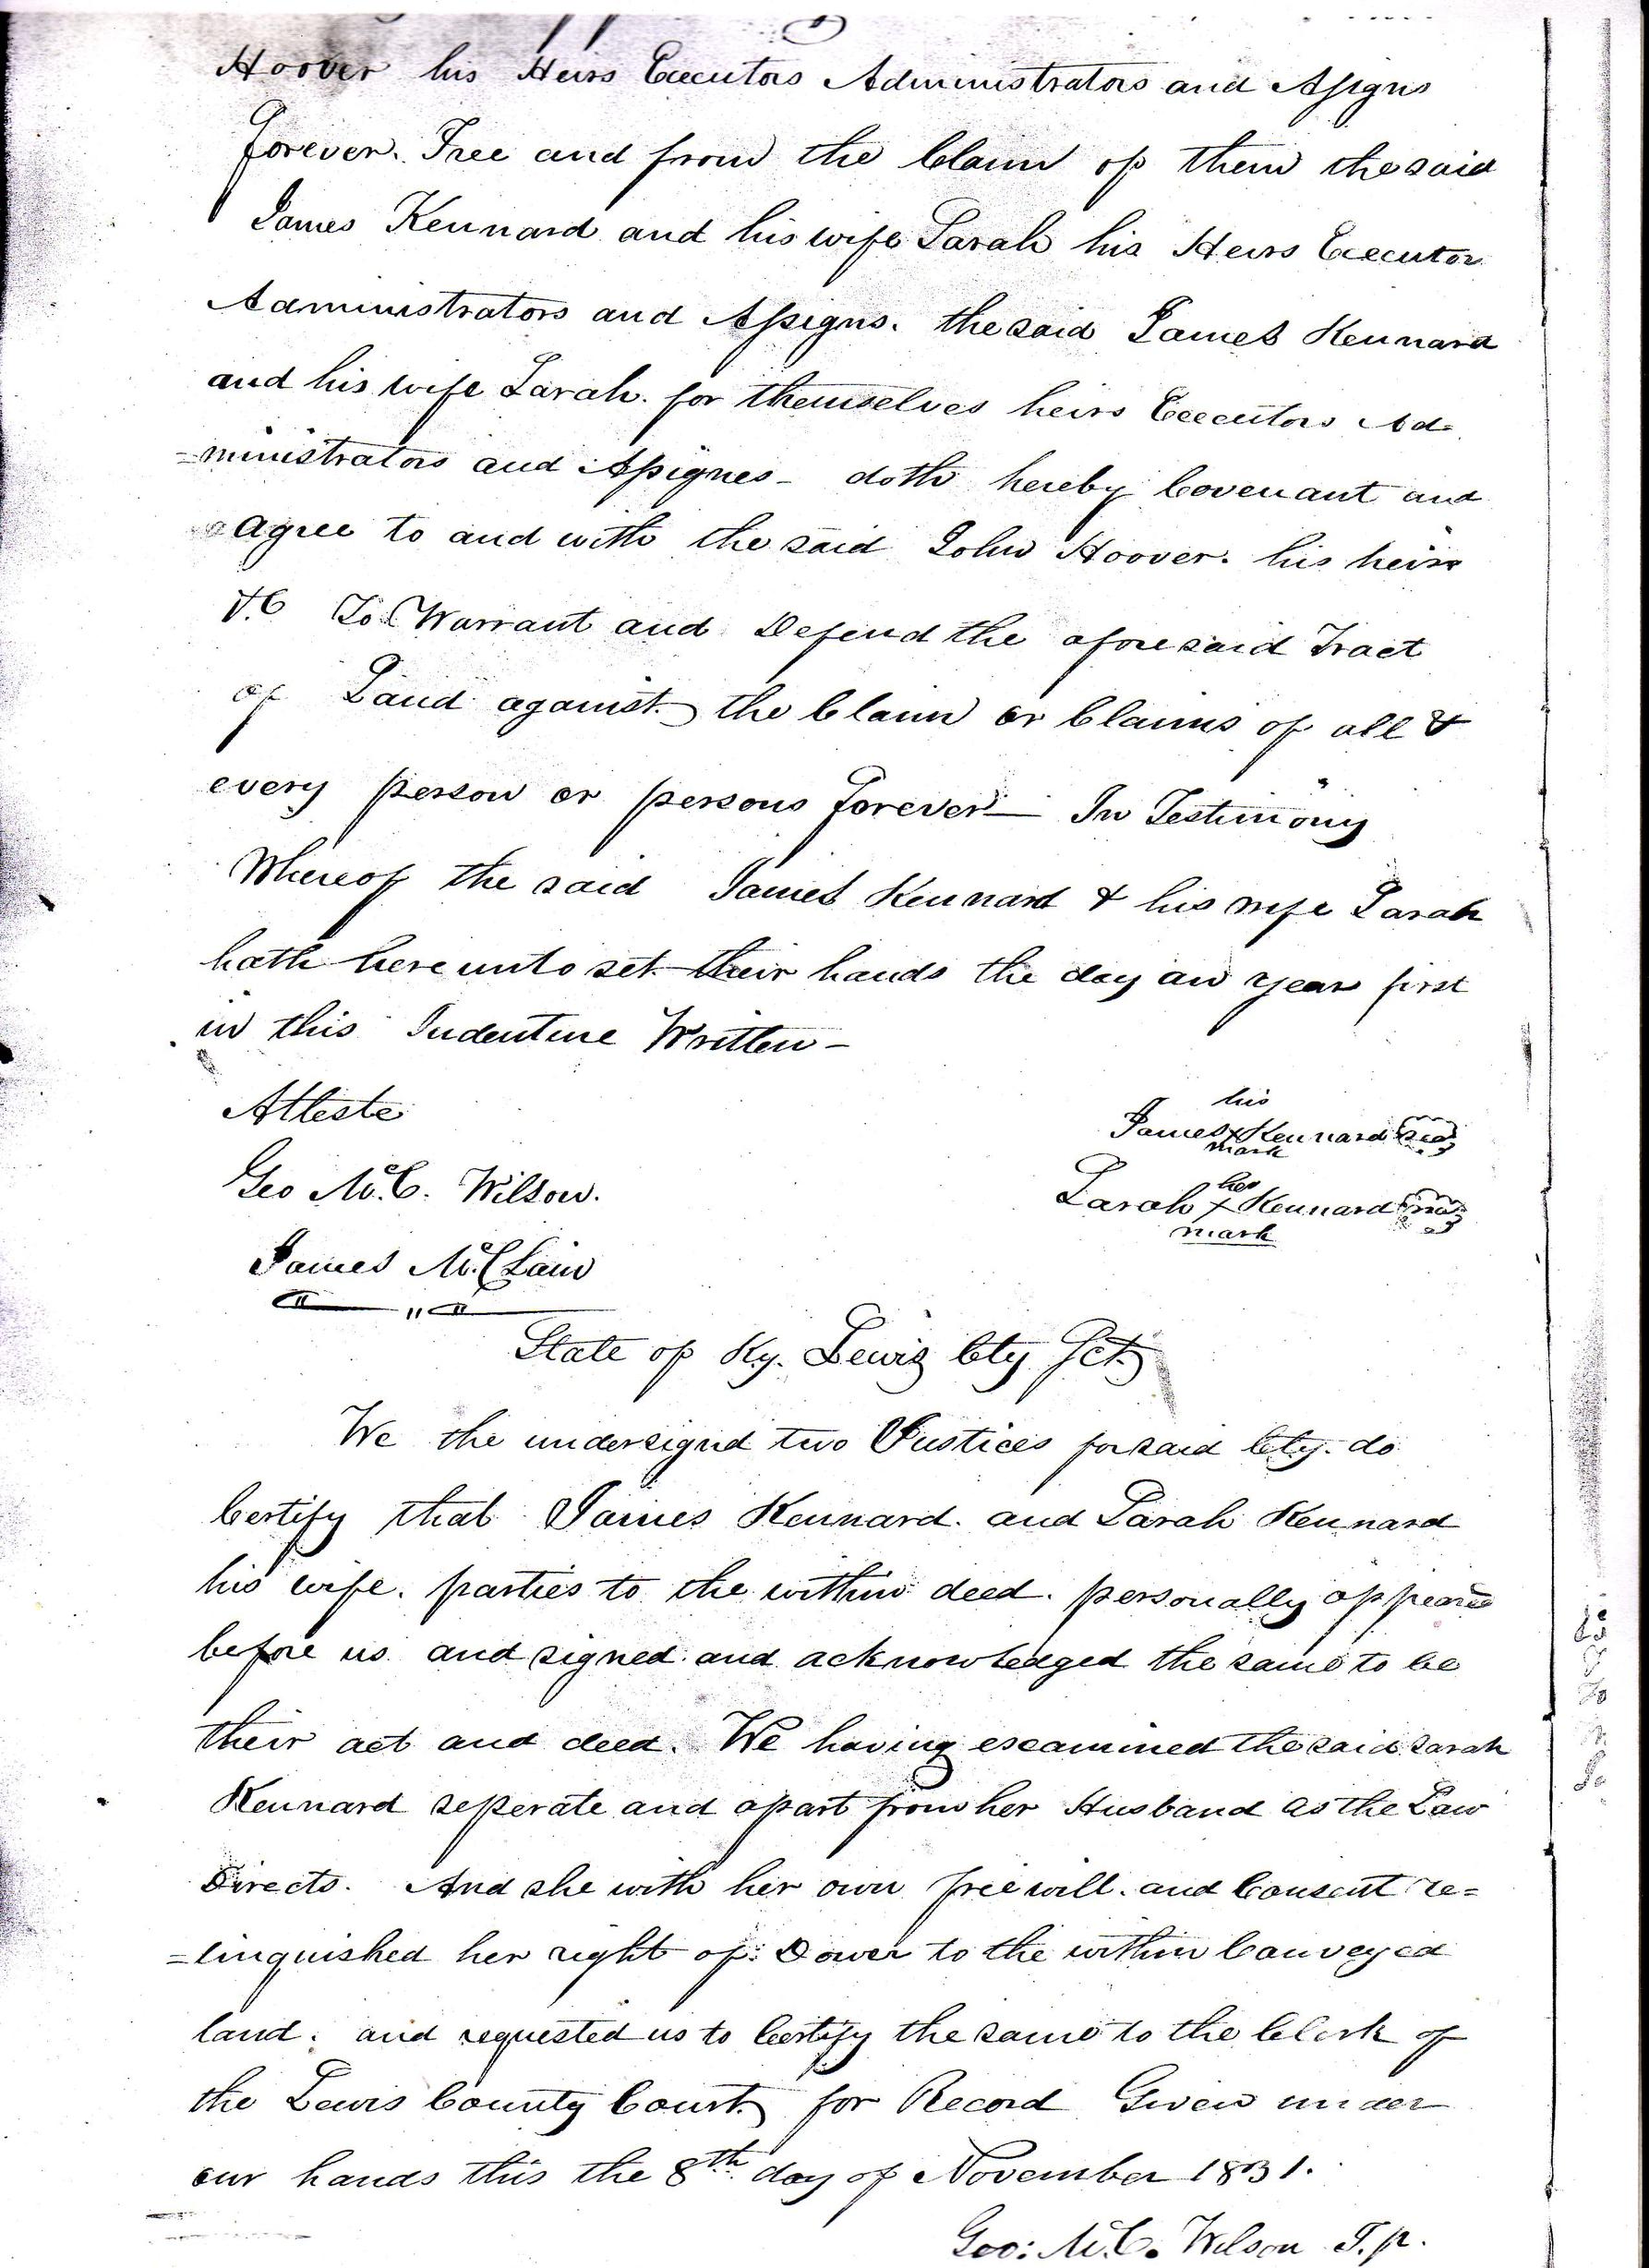 Hoover his Heirs Executors Administrators and Assigns
forever. Free and from the Claim of them the said
James Kennard and his wife Sarah his Heirs Executor
Administrators and Assigns. the said James Kennard
and his wife Sarah. for themselves heirs Executors Ad=
=ministrators and Assignes - doth hereby Covenant and
agree to and with the said John Hoover. his heirs
&C To Warrant and Defend the aforesaid Tract
of Land against the Claim or Claims of all &
every person or persons forever — In Testimony
Whereof the said James Kennard & his wife Sarah
hath hereunto set their hands the day an year first
in this Indenture Written -
Atteste
Geo McC. Wilson.
James McClain
his
James x Kennard seal
mark
her
Sarah x Kennard seal
mark
State of Ky. Lewis Cty Sct.
We the undersignd two Justices for said Cty. do
Certify that James Kennard. and Sarah Kennard
his wife. parties to the within deed. personally appeared
before us and signed and acknowledged the same to be
their act and deed. We having examined the said Sarah
Kennard seperate and apart from her Husband as the Law
Directs. And she with her own free will. and Consent re=
=linquished her right of Dower to the within Conveyed
land. and requested us to Certify the same to the Clerk of
the Lewis County Court for Record Given under
our hands this the 8th day of November 1831.
Geo: McC. Wilson J.P.